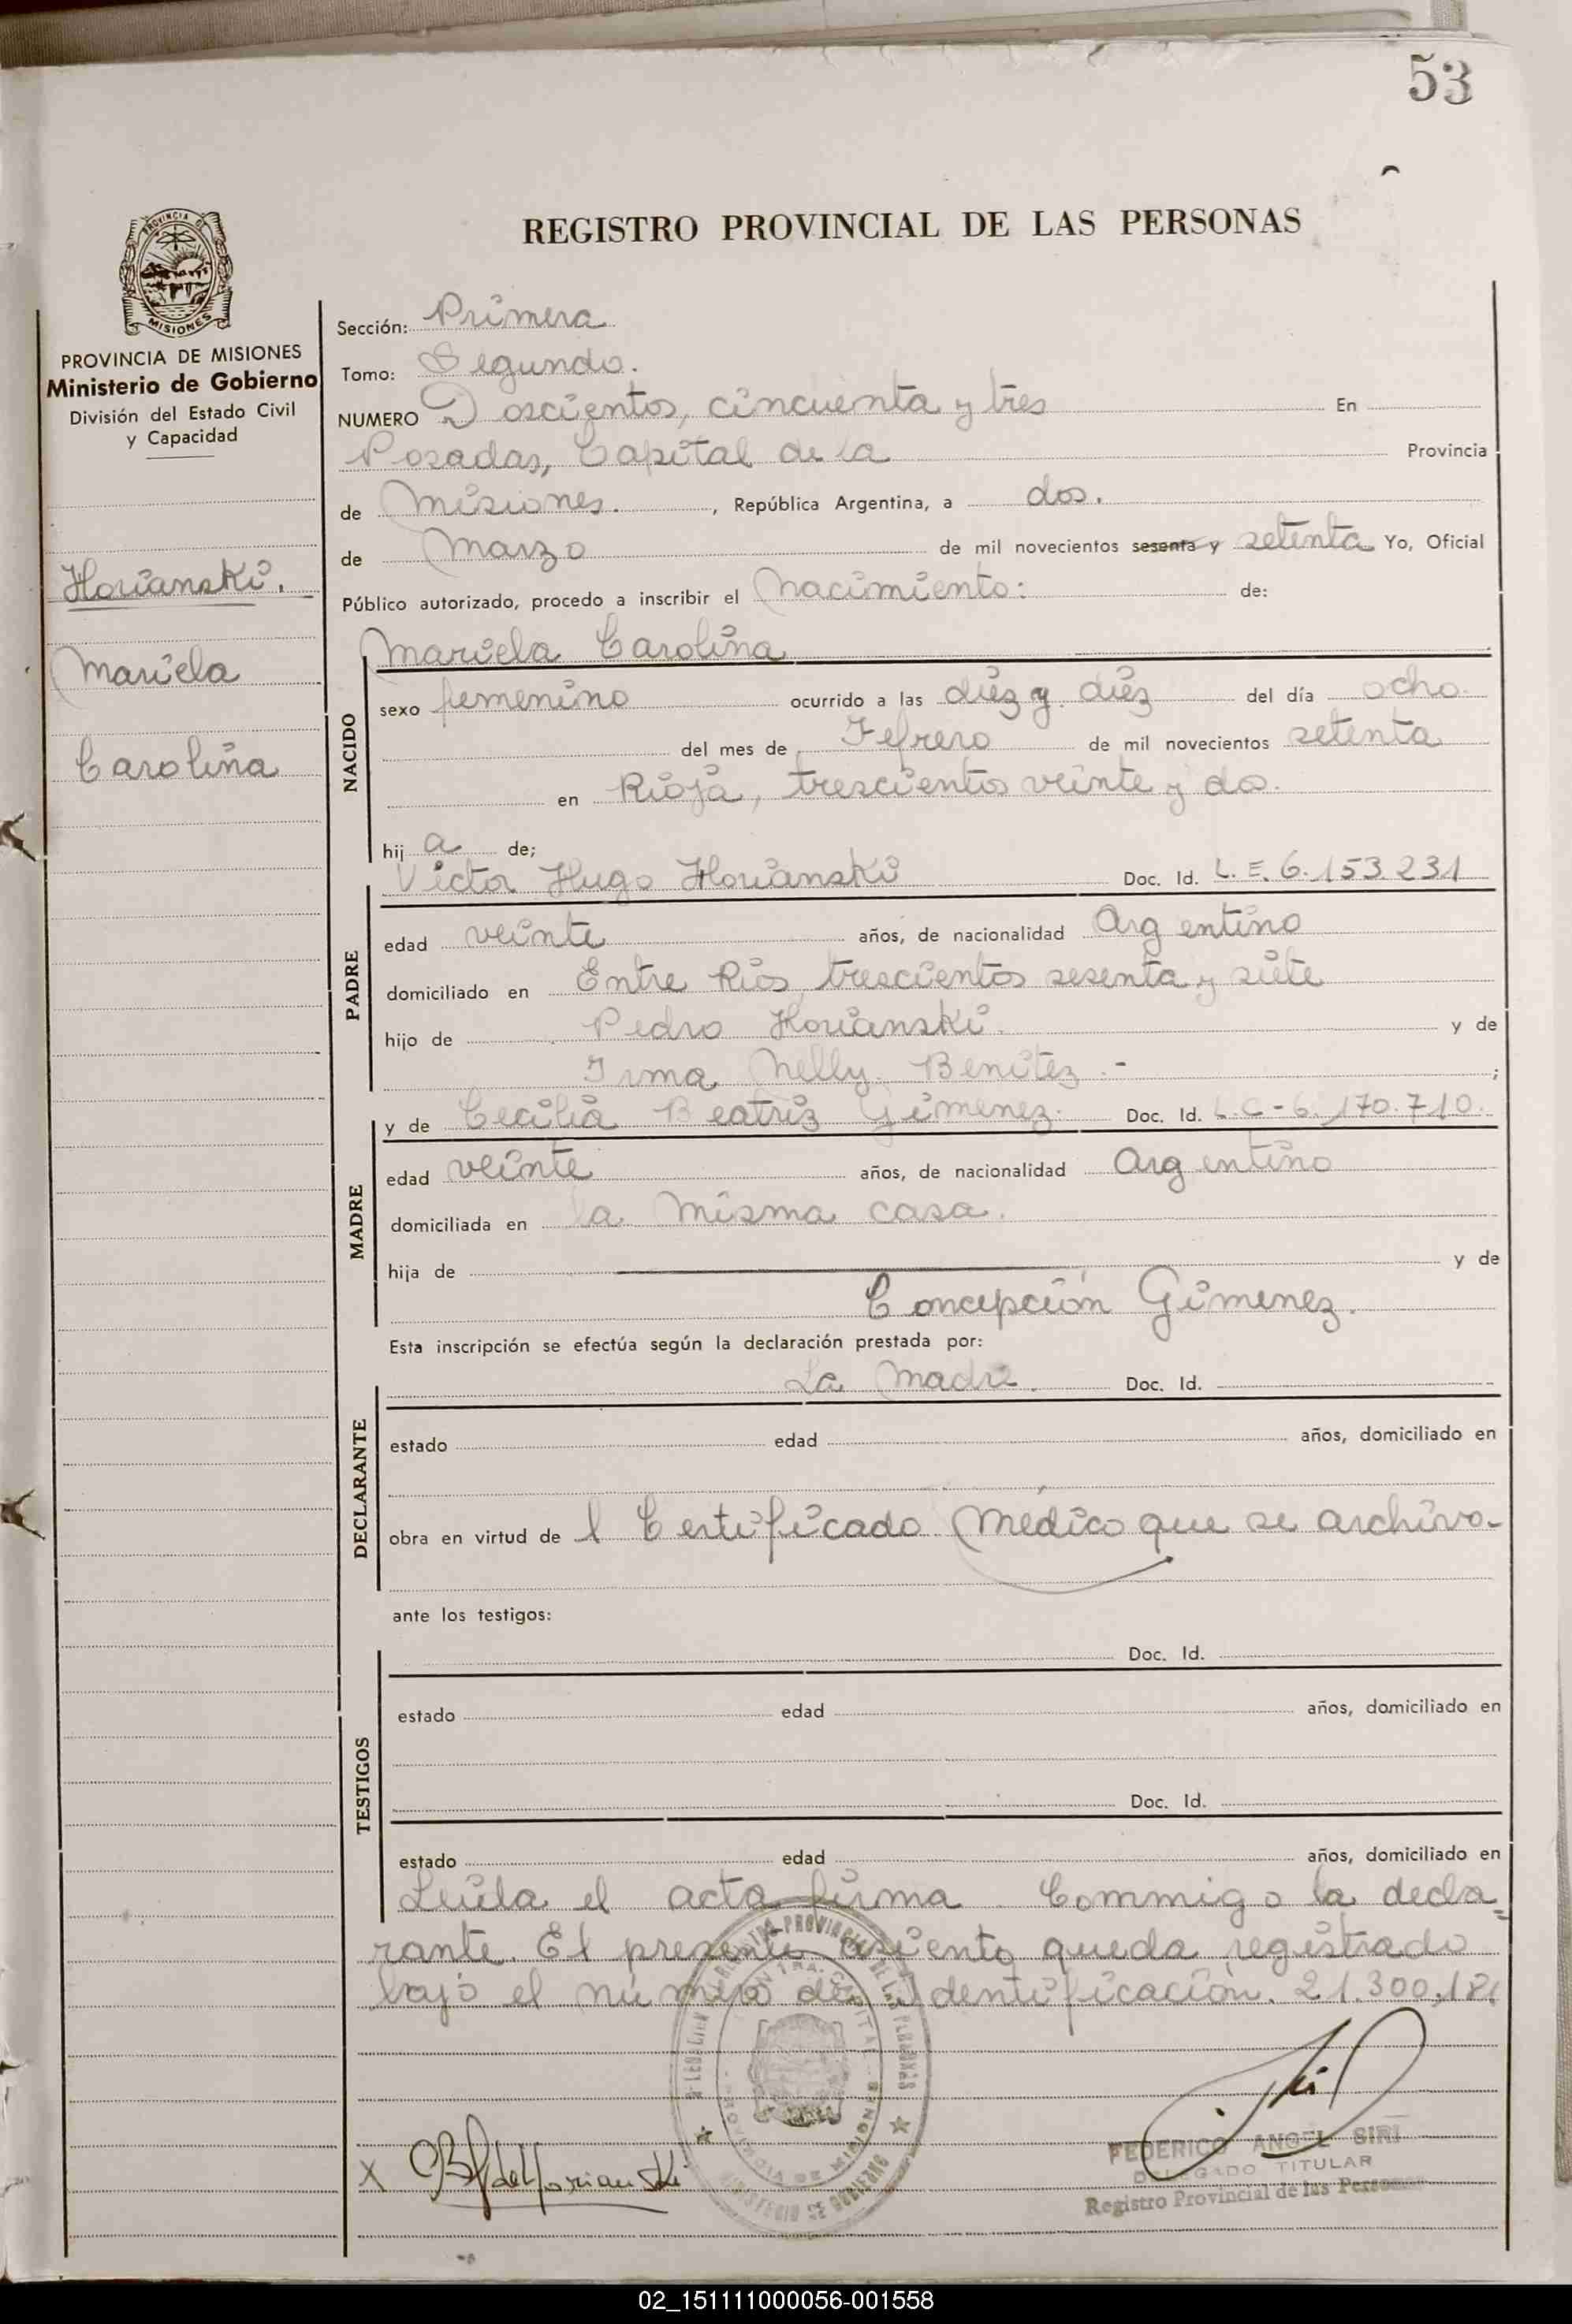 53
REGISTRO PROVINCIAL DE LAS PERSONAS
PROVINCIA DE MISIONES
Ministerio de Gobierno
División del Estado Civil
y Capacidad
Horianski.
Mariela
Carolina
Sección: Primera
Tomo: Segundo.
NUMERO Doscientos, cincuenta y tres En
Posadas, Capital de la Provincia
de Misiones. , República Argentina, a dos.
de Marzo de mil novecientos sesenta y setenta Yo, Oficial
Público autorizado, procedo a inscribir el Nacimiento: de:
Mariela Carolina
NACIDO
sexo femenino ocurrido a las diéz y diéz del día ocho.
del mes de Febrero de mil novecientos setenta
en Rioja, trescientos veinte y dos.
hij a de;
Victor Hugo Horianski Doc. Id. L. E. 6.153.231
PADRE
edad veinte años, de nacionalidad Argentino
domiciliado en Entre Rios trescientos sesenta y siete
hijo de Pedro Horianski. y de
Irma Nelly Benitez. - ;
y de Cecilia Beatriz Gimenez. Doc. Id. L.C - 6.170.710.
MADRE
edad veinte años, de nacionalidad Argentino
domiciliada en la misma casa.
hija de y de
Concepción Gimenez.
Esta inscripción se efectúa según la declaración prestada por:
La Madre. Doc. Id.
DECLARANTE
estado edad años, domiciliado en
obra en virtud de l Certificado Médico que se archivo.
ante los testigos:
Doc. Id.
TESTIGOS
estado edad años, domiciliado en
Doc. Id.
estado edad años, domiciliado en
Leida el acta firma Commigo la decla
rante. El presente asiento queda registrado
bajo el número de Identificación. 21.300.18
X
FEDERICO ANGEL SIRI
DELEGADO TITULAR
Registro Provincial de las Personas
02_151111000056-001558